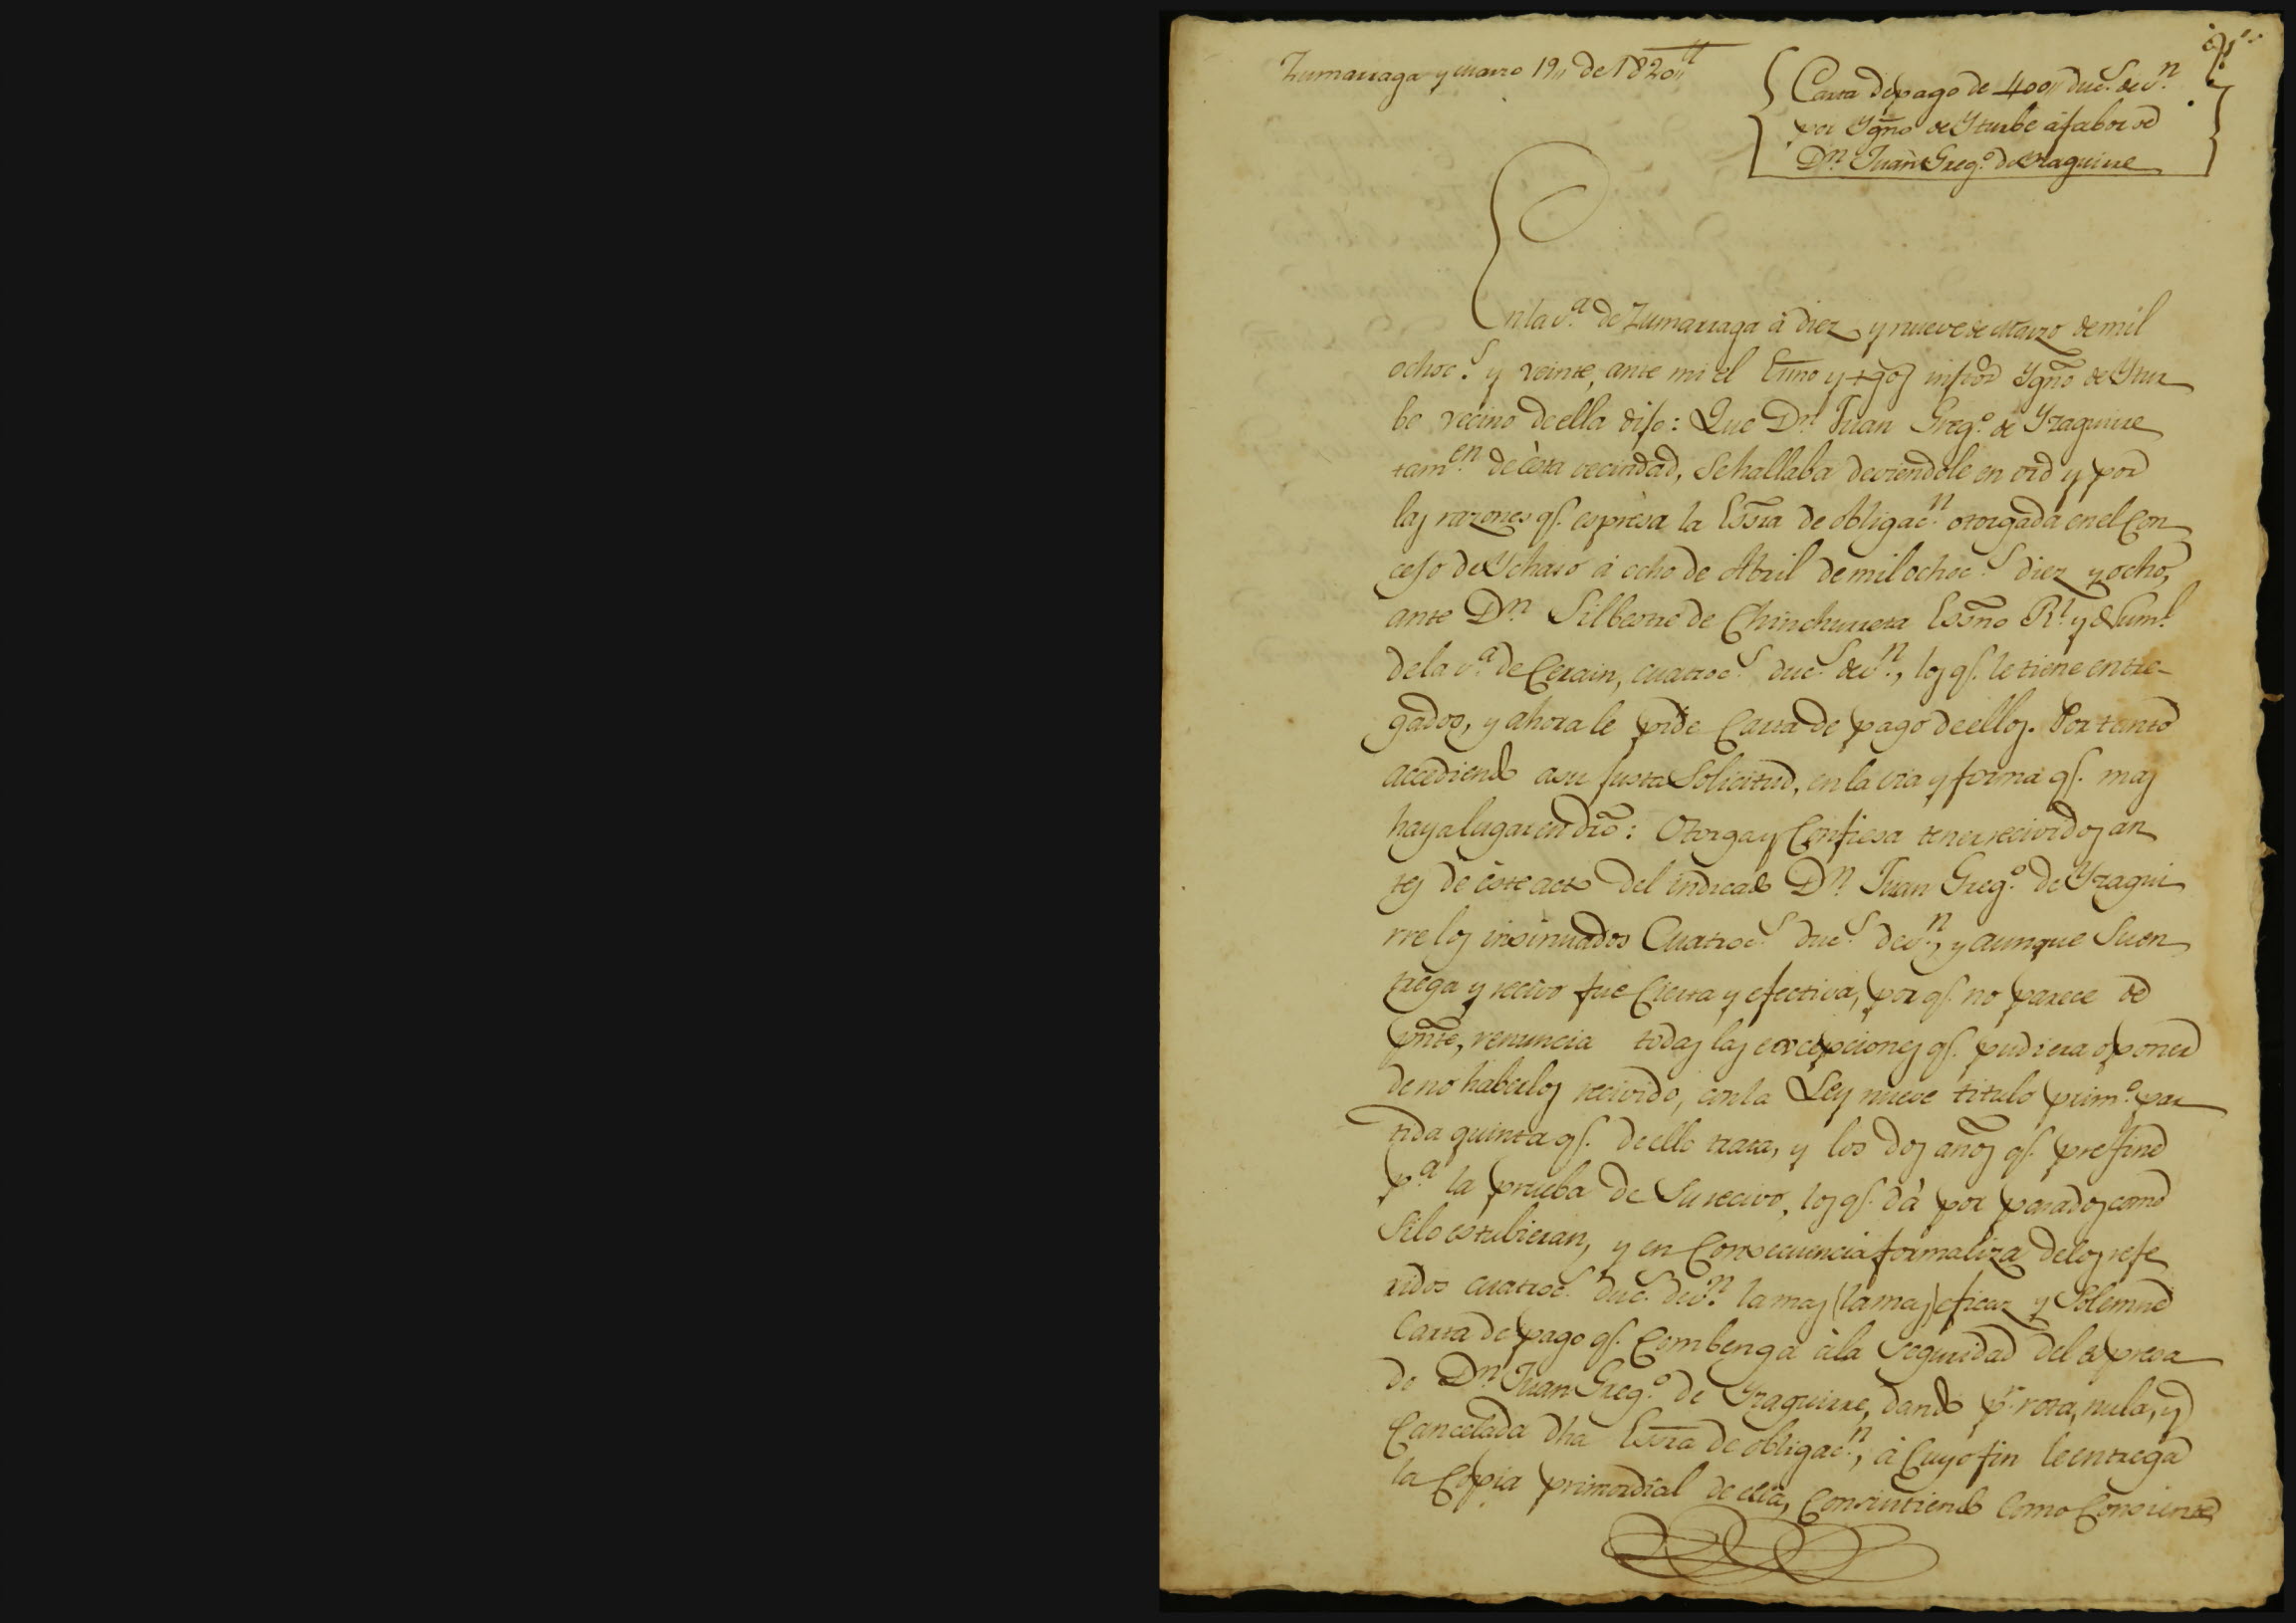 Zumarraga y marzo 19,, de 1820,,
Carta de pago de 400,, duc.s de v.n
por Ygño de Yturbe á fabor de
Dn. Juan Greg.o de Yraguirre
En la v.a de Zumarraga á diez y nueve de Marzo de mil
ochoc.s y veinte, ante mi el Esno y tgos infros Ygño de Ytur
be vecino de ella dijo: Que Dn. Juan Greg.o de Yraguirre
tam.en de ésta vecindad, se hallaba deviendole en vrd y por
las razones qe. espresa la Essra de obligac.n otorgada en el Con
cejo de Ychaso á ocho de Abril de mil ochoc.s diez y ocho,
ante Dn. Silbestre de Chinchurreta Essno Rl. y Numl.
de la v.a de Cerain, cuatroc.s duc.s de v.n, los qe. le tiene entre-
gados, y ahora le pide Carta de pago de ellos. Por tanto
accediendo a su justa Solicitud, en la via y forma qe. mas
haya lugar en dro: Otorga y Confiesa tener recividos an
tes de éste acto del indicado Dn. Juan Greg.o de Yragui
rre los insinuados Cuatroc.s duc.s de v.n, y aunque Su en
trega y recivo fue Cierta y efectiva, por qe. no parece de
pnte, renuncia todas las excepciones qe. pudiera oponer
de no haberlos recivido, con la Ley nueve titulo prim.o par
tida quinta qe. de ello trata, y los dos años qe. prefine
p.a la prueba de Su recivo, los qe. dá por pasados como
Si lo estubieran, y en Consecuencia formaliza de los refe
ridos cuatroc.s duc.s de v.n la mas (la mas) eficaz y Solemne
Carta de pago qe. Combenga á la Seguridad del espresa
do Dn. Juan Greg.o de Yraguirre, dando pr. rota, nula, y
Cancelada dha Essra de obligac.n, á Cuyo fin le entrega
la Copia primordial de ella, Consintiendo Como Consiente